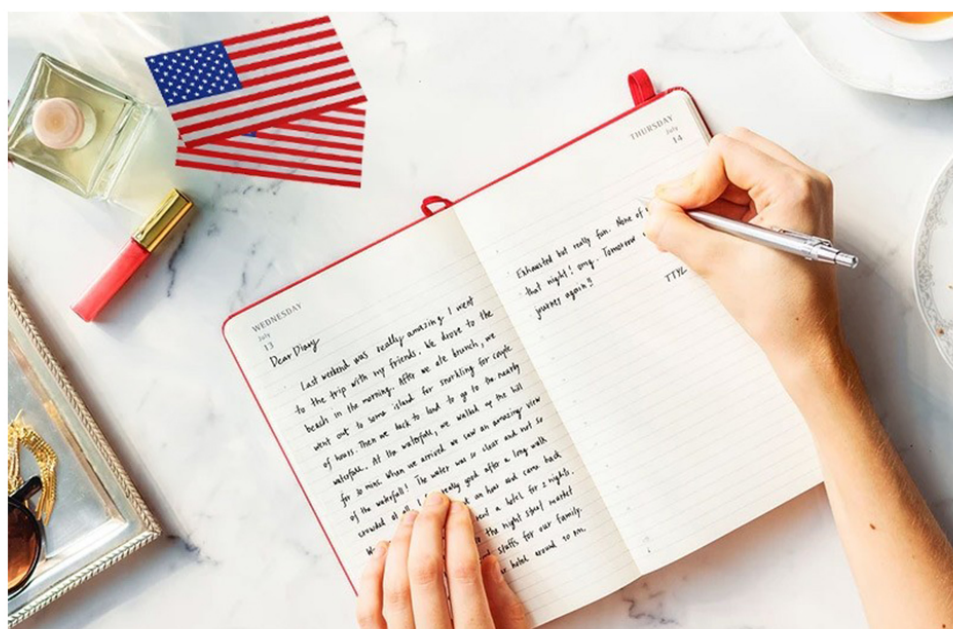 WEDNESDAY
July
13
Dear Diary
Last weekend was really amazing I went
to the trip with my friends. We drove to the
beach in the morning. After we ate brunch, we
went out to some island for snorkling for couple
of hours. Then we back to land to go to the nearby
waterfall. At the waterfall, we walked up the hill
for 30 mins. When we arrived we saw an amazing view
of the waterfall! The water was so clear and not so
crowded at all. really good after a long walk
an hour and came back
a hotel for 2 nights.
to the night street market
stuffs for our family.
hotel around 10 pm.
THURSDAY
July
14
Exhausted but really fun. None of
that night! omg. Tomorrow
journey again!!
TTYL